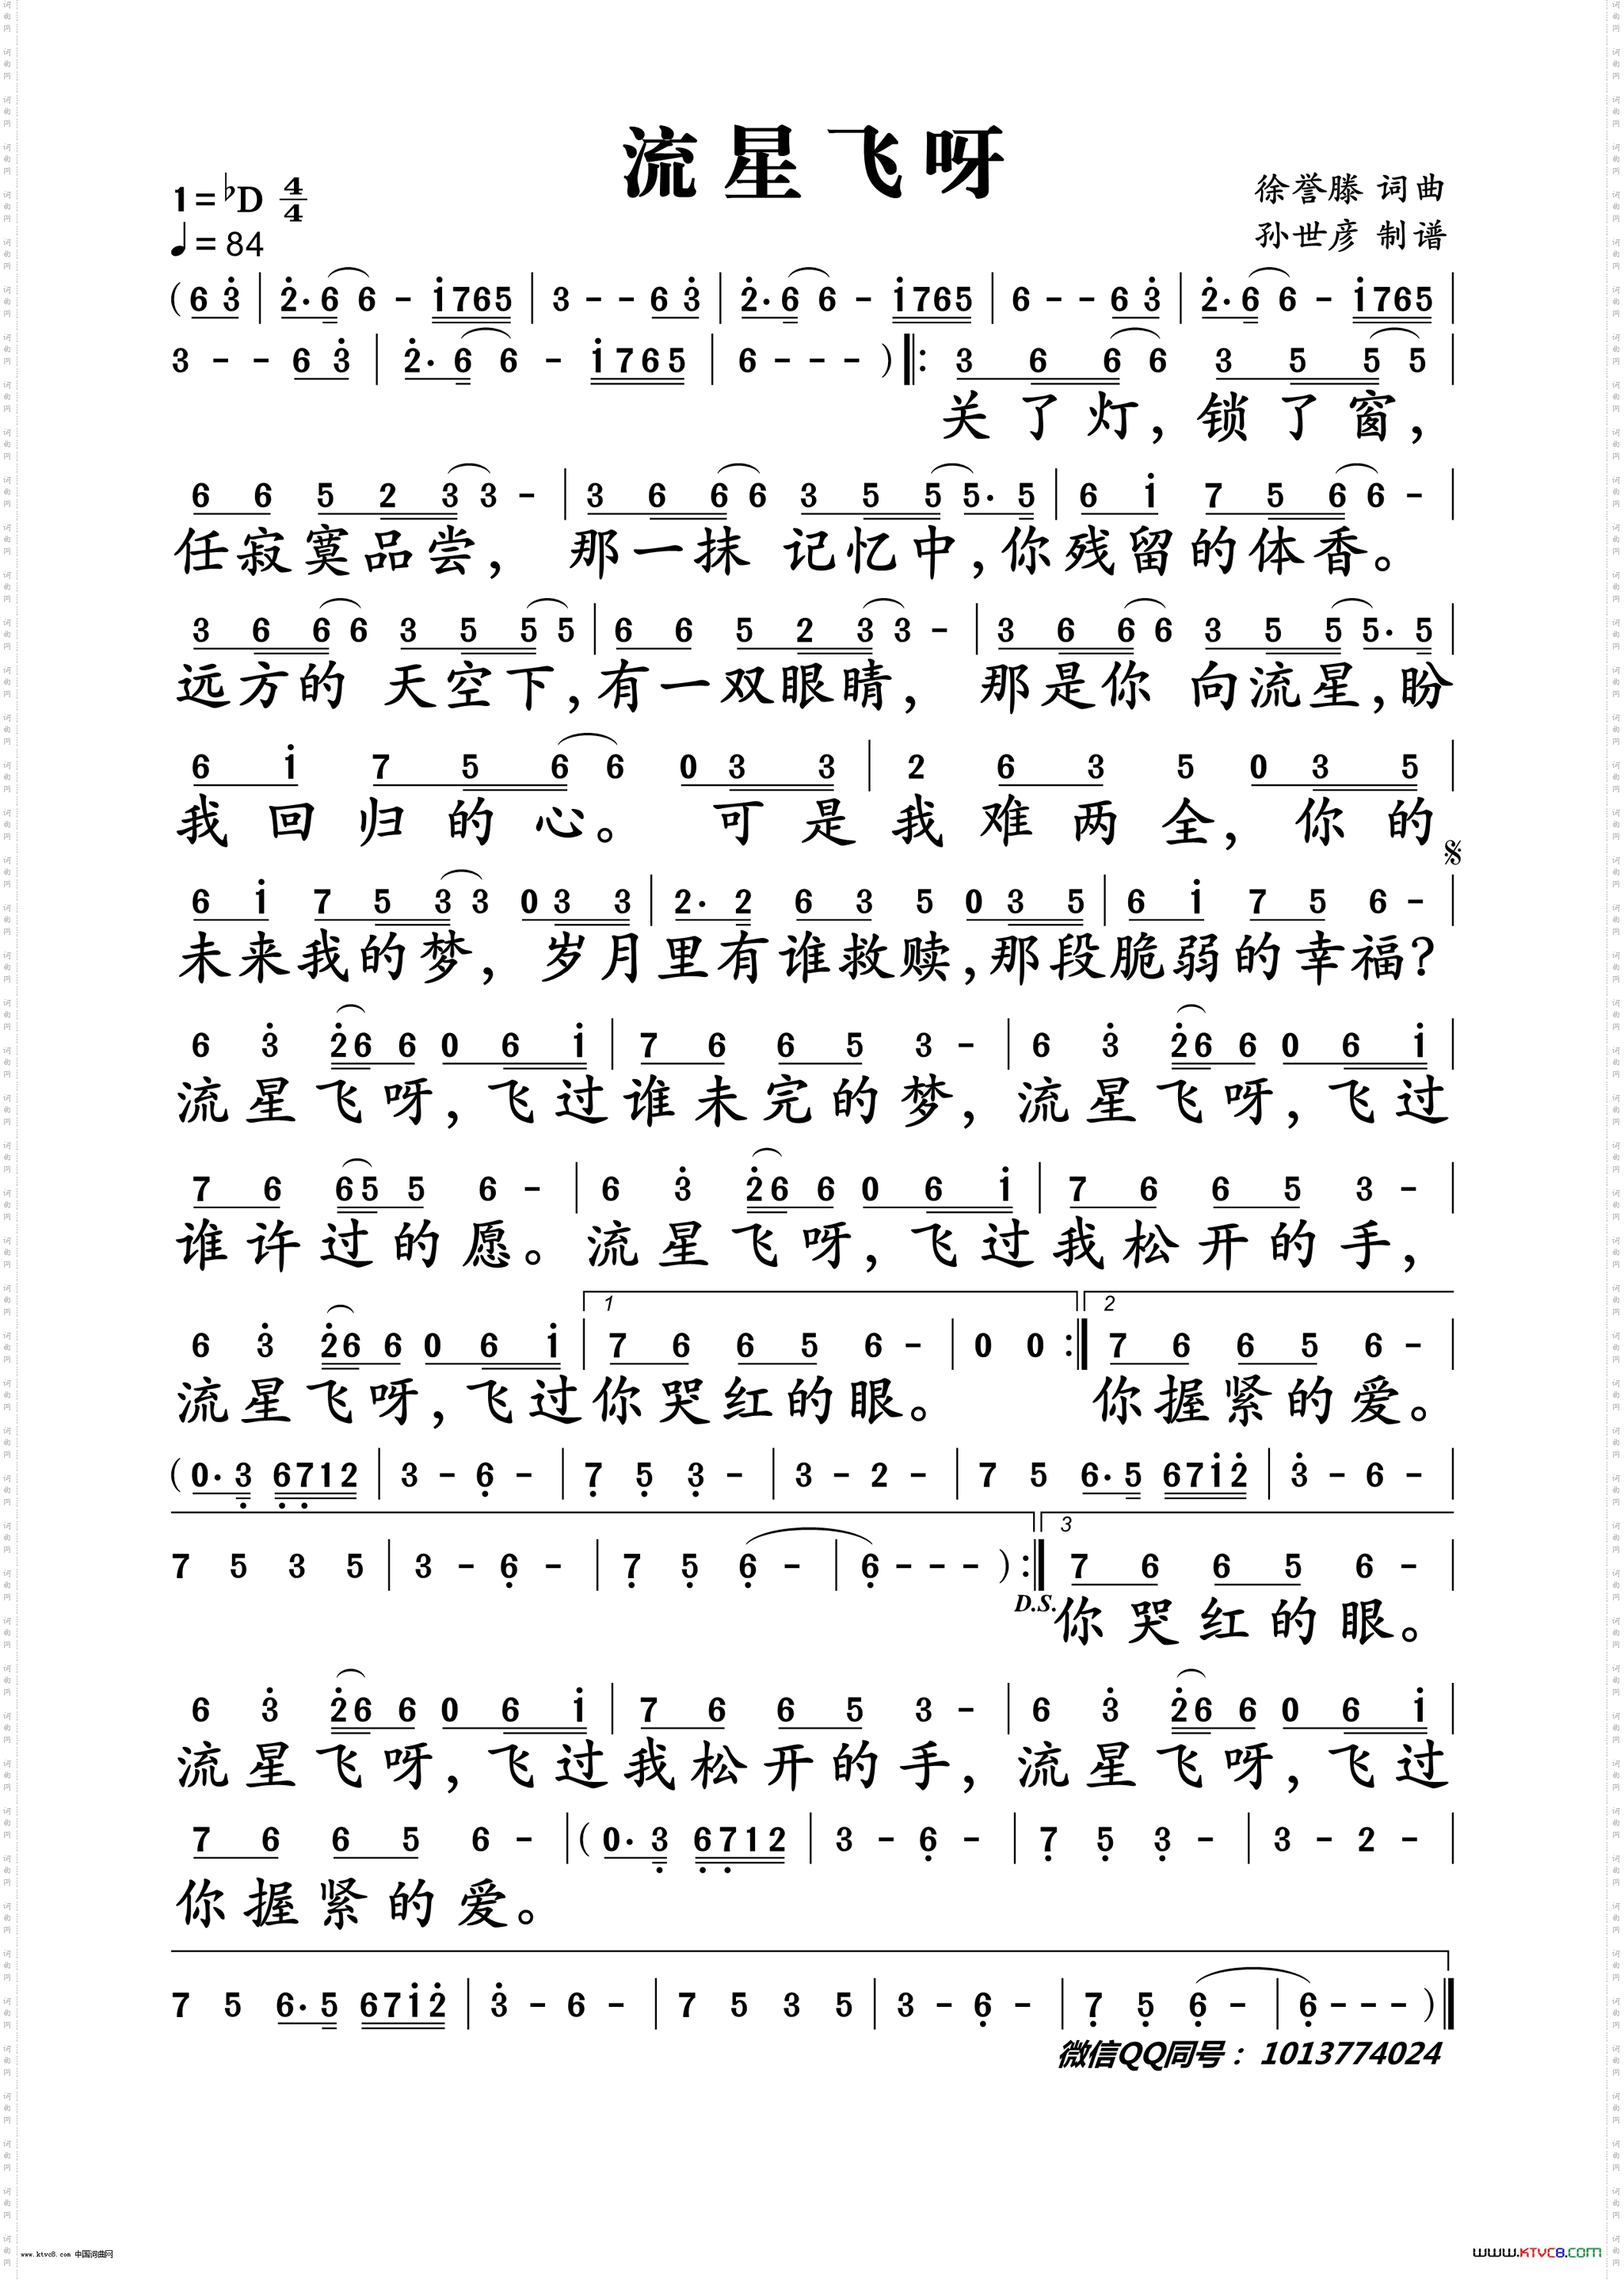 流星飞呀
1=♭D 4/4
♩=84
徐誉滕 词曲
孙世彦 制谱
(6 3 | 2· 6 6 - 1765 | 3 - - 6 3 | 2· 6 6 - 1765 | 6 - - 6 3 | 2· 6 6 - 1765 |
3 - - 6 3 | 2· 6 6 - 1765 | 6 - - - ) ‖: 3 6 6 6 3 5 5 5 |
关了灯,锁了窗,
6 6 5 2 3 3 - | 3 6 6 6 3 5 5 5· 5 | 6 1 7 5 6 6 - |
任寂寞品尝, 那一抹 记忆中,你残留的体香。
3 6 6 6 3 5 5 5 | 6 6 5 2 3 3 - | 3 6 6 6 3 5 5 5· 5 |
远方的 天空下,有一双眼睛, 那是你 向流星,盼
6 1 7 5 6 6 0 3 3 | 2 6 3 5 0 3 5 |
我回归的心。 可是我难两全,你的
6 1 7 5 3 3 0 3 3 | 2· 2 6 3 5 0 3 5 | 6 1 7 5 6 - |
未来我的梦, 岁月里有谁救赎,那段脆弱的幸福?
6 3 26 6 0 6 1 | 7 6 6 5 3 - | 6 3 26 6 0 6 1 |
流星飞呀,飞过谁未完的梦,流星飞呀,飞过
7 6 65 5 6 - | 6 3 26 6 0 6 1 | 7 6 6 5 3 - |
谁许过的愿。流星飞呀,飞过我松开的手,
1 2
6 3 26 6 0 6 1 | 7 6 6 5 6 - | 0 0 :‖ 7 6 6 5 6 - |
流星飞呀,飞过你哭红的眼。 你握紧的爱。
(0· 3 6712 | 3 - 6 - | 7 5 3 - | 3 - 2 - | 7 5 6· 5 6712 | 3 - 6 - |
3
7 5 3 5 | 3 - 6 - | 7 5 6 - | 6 - - - ) :‖ 7 6 6 5 6 - |
D.S. 你哭红的眼。
6 3 26 6 0 6 1 | 7 6 6 5 3 - | 6 3 26 6 0 6 1 |
流星飞呀,飞过我松开的手,流星飞呀,飞过
7 6 6 5 6 - | (0· 3 6712 | 3 - 6 - | 7 5 3 - | 3 - 2 - |
你握紧的爱。
7 5 6· 5 6712 | 3 - 6 - | 7 5 3 5 | 3 - 6 - | 7 5 6 - | 6 - - - ) ‖
微信QQ同号: 1013774024
www.ktvc8.com 中国词曲网
WWW.KTVC8.COM